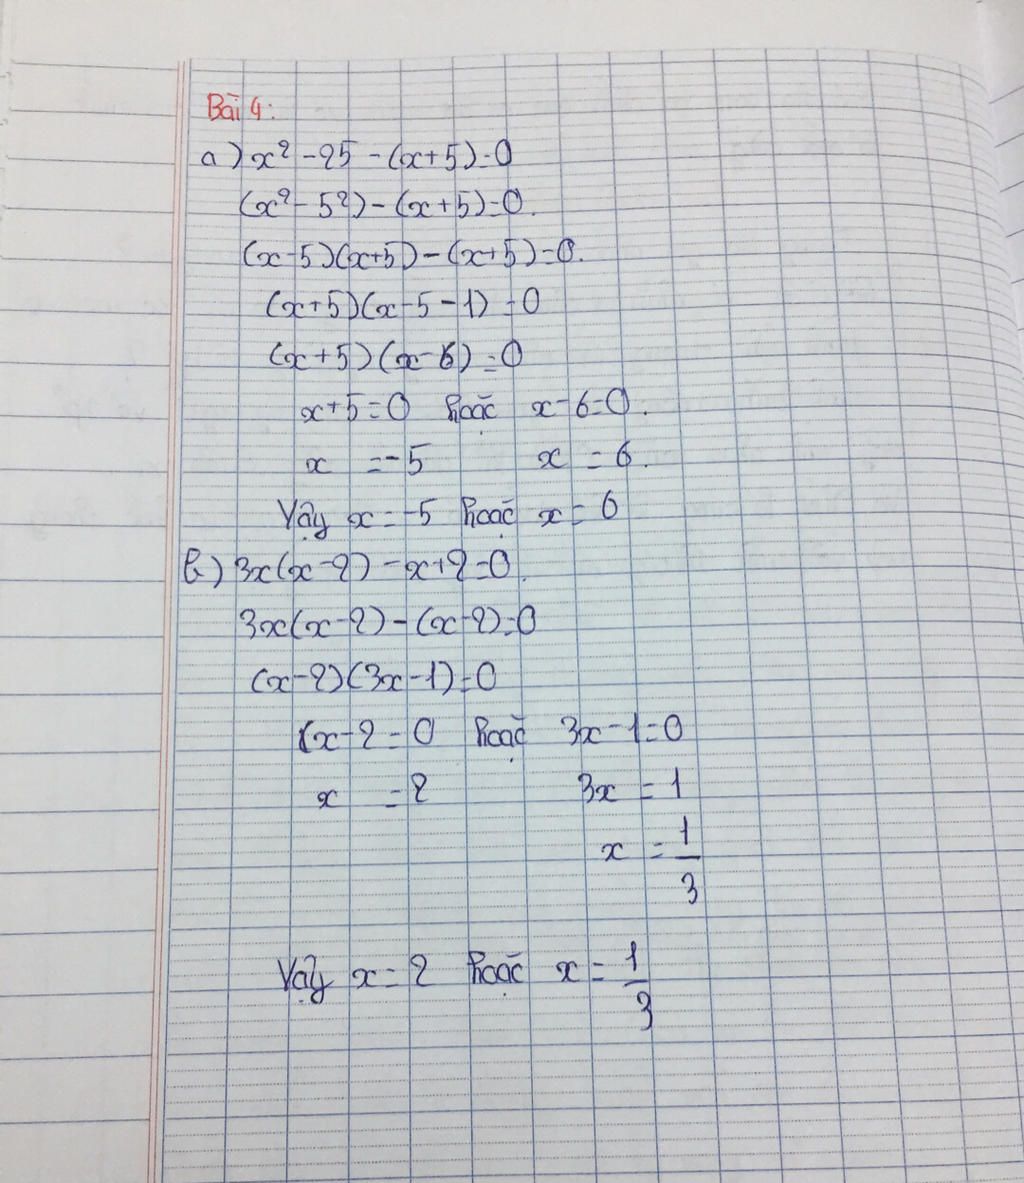 Bài 4:
a) x² - 25 - (x+5) = 0
(x² - 5²) - (x+5) = 0.
(x-5)(x+5) - (x+5) = 0.
(x+5)(x-5-1) = 0
(x+5)(x-6) = 0
x+5 = 0 hoặc x-6 = 0.
x = -5 x = 6.
Vậy x = -5 hoặc x = 6
b) 3x(x-2) - x+2 = 0.
3x(x-2) - (x-2) = 0
(x-2)(3x-1) = 0
(x-2 = 0 hoặc 3x-1 = 0
x = 2 3x = 1
x = 1/3
Vậy x = 2 hoặc x = 1/3